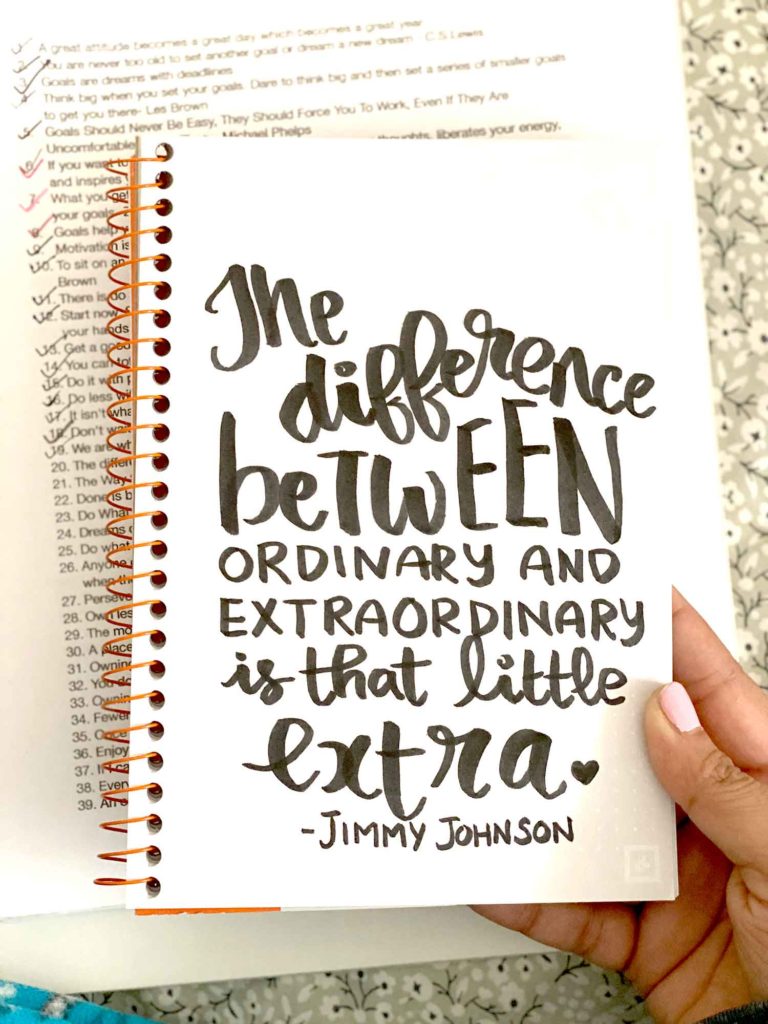 1. A great attitude becomes a great day which becomes a great year
2. You are never too old to set another goal or dream a new dream C.S.Lewis
3. Goals are dreams with deadlines
4. Think big when you set your goals. Dare to think big and then set a series of smaller goals
to get you there- Les Brown
5. Goals Should Never Be Easy, They Should Force You To Work, Even If They Are
Uncomfortable Michael Phelps
6. If you want to thoughts, liberates your energy,
and inspires
7. What you get
your goals
8. Goals help
9. Motivation is
10. To sit on an
Brown
11. There is do
12. Start now
your hands
13. Get a good
14. You can
15. Do it with p
16. Do less
17. It isn't wha
18. Don't wa
19. We are wh
20. The differ
21. The Way
22. Done is b
23. Do What
24. Dreams
25. Do what
26. Anyone
when the
27. Perseve
28. Own les
29. The mo
30. A place
31. Owning
32. You do
33. Owning
34. Fewer
35. Once
36. Enjoy
37. If I ca
38. Every
39. An
The
difference
beTWEEN
ORDINARY AND
EXTRAORDINARY
is that little
extra.
-JIMMY JOHNSON